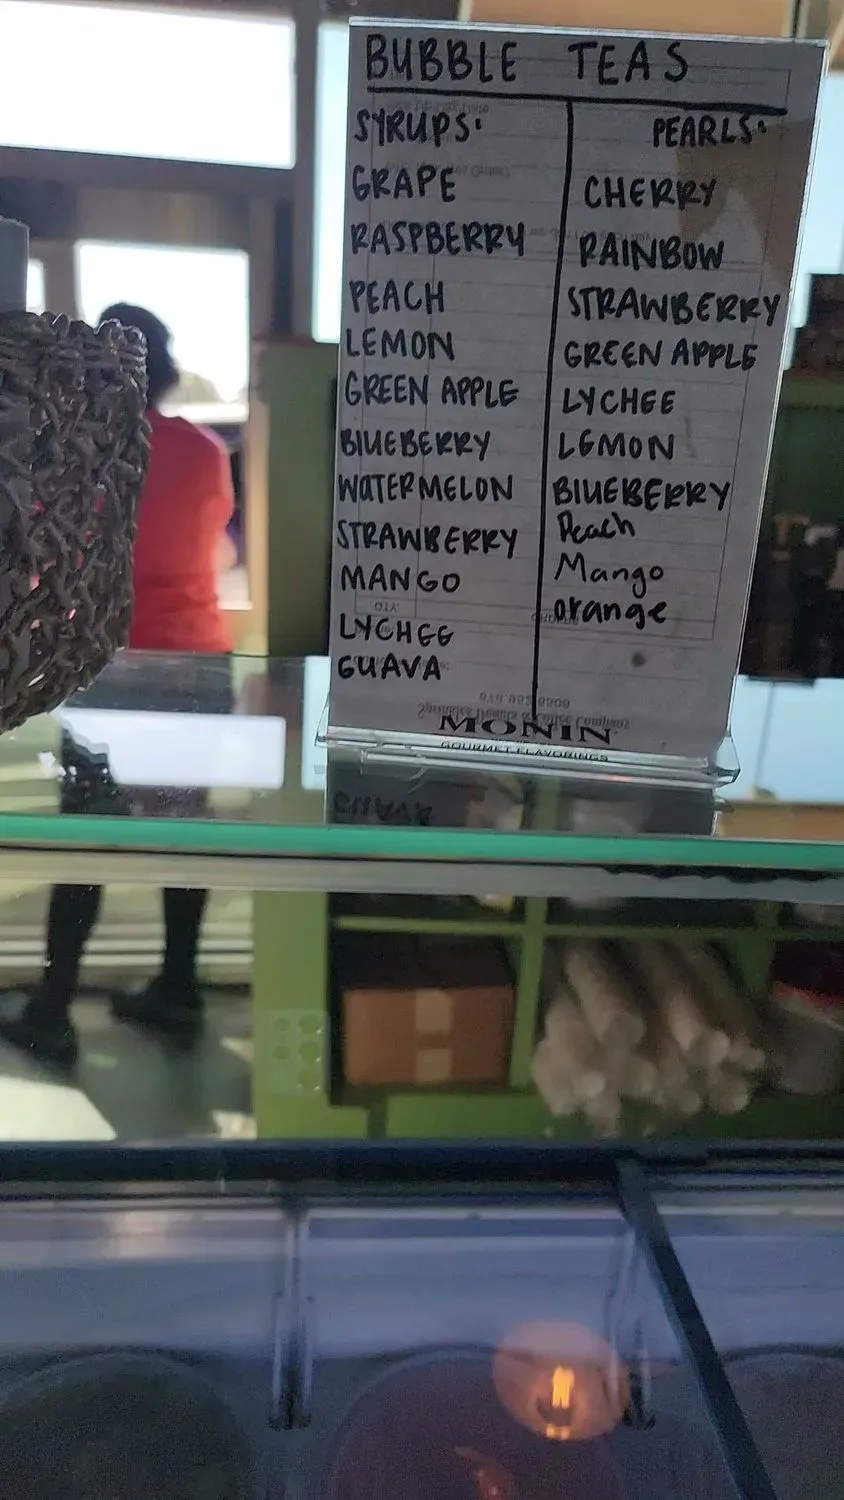 BUBBLE TEAS
SYRUPS:
GRAPE
RASPBERRY
PEACH
LEMON
GREEN APPLE
BLUEBERRY
WATERMELON
STRAWBERRY
MANGO
LYCHEE
GUAVA
PEARLS:
CHERRY
RAINBOW
STRAWBERRY
GREEN APPLE
LYCHEE
LEMON
BLUEBERRY
Peach
Mango
orange
MONIN
GOURMET FLAVORINGS